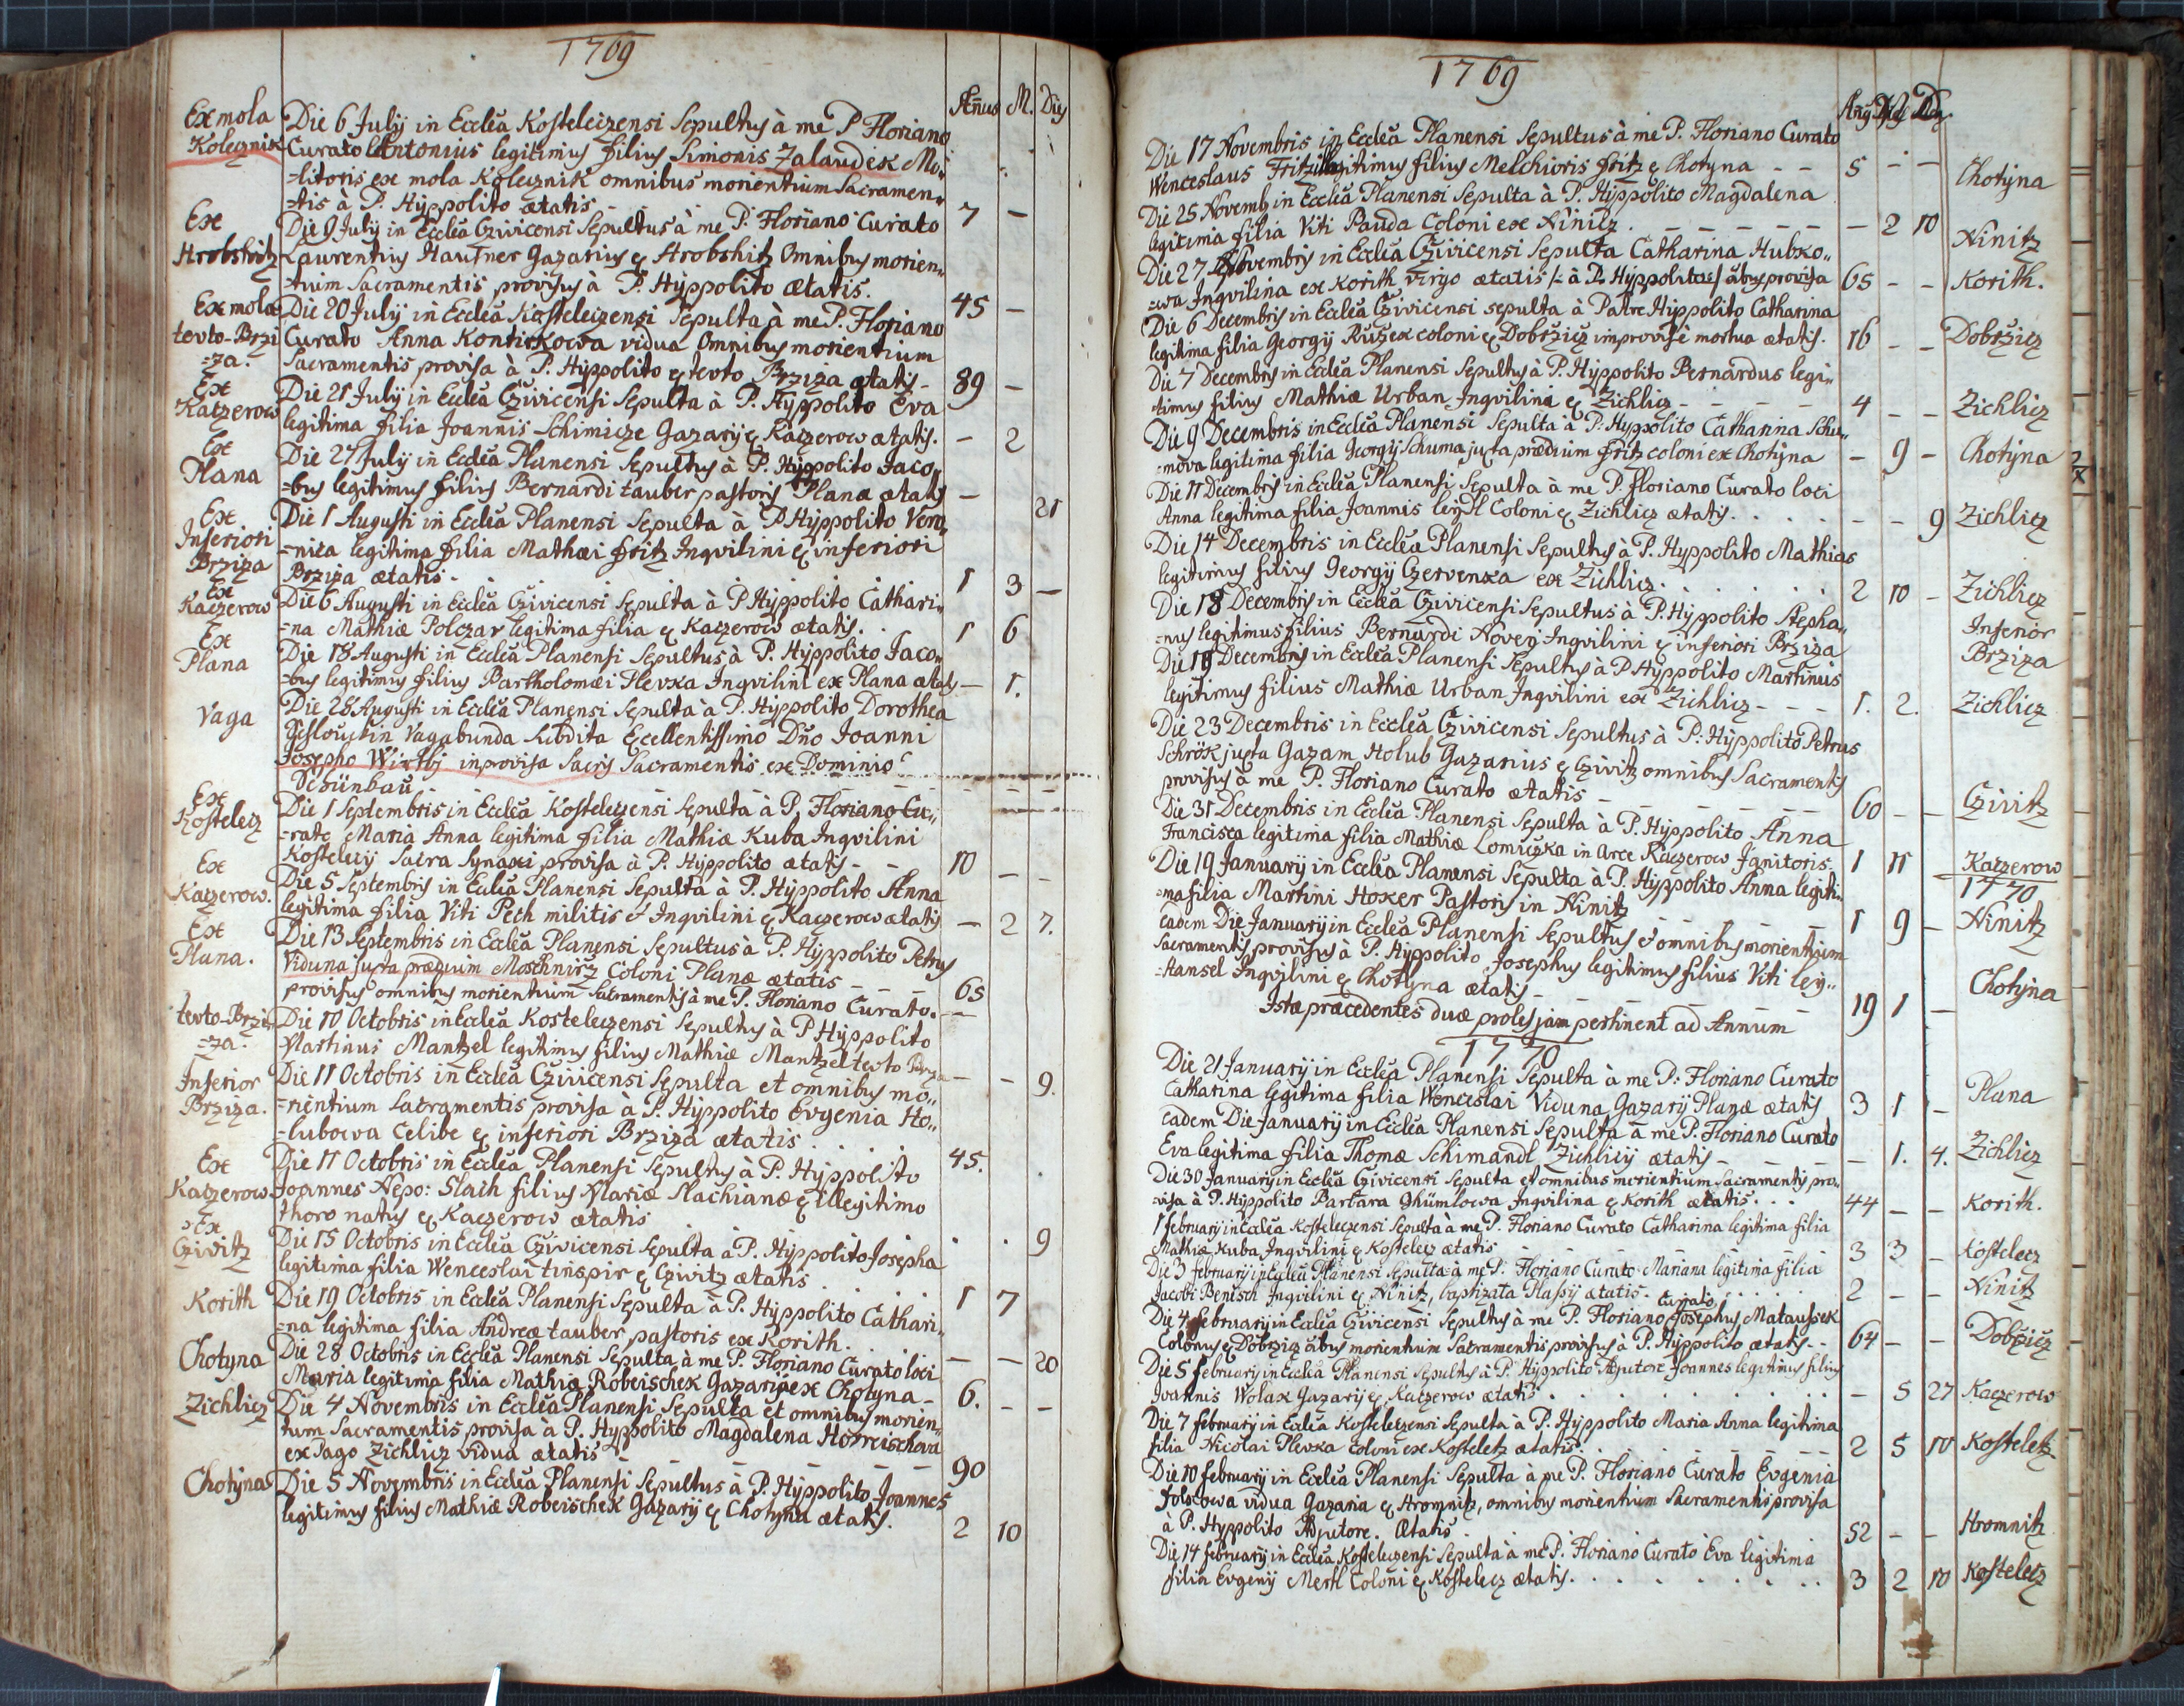 1769
Annus M. Dies
Ex mola Kolecznik
Die 6 July in Ecclea Kosteleczensi Sepultus à me P Floriano
Curato Antonius legitimus filius Simonis Zalaudek Mo,,
=litoris ex mola Kolecznik omnibus morientium Sacramen,,
=tis à P. Hyppolito ætatis 7 —
Ex Hrobshitz
Die 9 July in Ecclea Czivicensi Sepultus à me P. Floriano Curato
Laurentius Hautner Gazarius ex Hrobshitz Omnibus morien,,
tium Sacramentis provisus à P. Hyppolito Ætatis. 45 —
Ex mola tevto-Brzi=za.
Die 20 July in Ecclea Kosteleczensi Sepulta à me P. Floriano
Curato Anna Kontirkowa vidua Omnibus morientium
Sacramentis provisa à P. Hyppolito ex tevto Brziza ætatis - 89 —
Ex Katzerow
Die 21 July in Ecclea Czivicensi Sepulta à P. Hyppolito Eva
legitima filia Joannis Schimicze Gazary ex Kaczerow ætatis. — 2
Ex Plana
Die 27 July in Ecclea Planensi Sepultus à P. Hyppolito Jaco,,
=bus legitimus filius Bernardi tauber pastoris Planæ ætatis — 21
Ex Inferiori Brziza
Die 1 Augusti in Ecclea Planensi Sepulta à P Hyppolito Vero,,
=nica legitima filia Mathæi fritz Inqvilini ex inferiori
Brziza ætatis - 1 3 —
Ex Kaczerow
Die 6 Augusti in Ecclea Czivicensi Sepulta à P Hyppolito Cathari,,
=na Mathiæ Polczar legitima filia ex Kaczerow ætatis. 1 6
Ex Plana
Die 18 Augusti in Ecclea Planensi Sepultus à P. Hyppolito Jaco,,
=bus legitimus filius Bartholomæi Plevka Inqvilini ex Plana ætatis — 1.
Vaga
Die 28 Augusti in Ecclea Planensi Sepulta à P. Hyppolito Dorothea
Vagabunda Subdita Excellentissimo Dño Joanni
Josepho Wirtbj inprovisa Sacris Sacramentis ex Dominio
Schünbau
Ex Kostelecz
Die 1 Septembris in Ecclea Kosteleczensi Sepulta à P. Floriano Cu,,
=rato Maria Anna legitima filia Mathiæ Kuba Inqvilini
Kostelecy Sacra Synaxi provisa à P. Hyppolito ætatis - - 10 — —
Ex Kaczerow.
Die 5 Septembris in Ecclea Planensi Sepulta à P. Hyppolito Anna
legitima filia Viti Pech militis et Inqvilini ex Kaczerow ætatis — 2 7.
Ex Plana.
Die 13 Septembris in Ecclea Planensi Sepultus à P. Hyppolito Petrus
Viduna juxta prædium Moschnirz Coloni Planæ ætatis - - - 65
provisus omnibus morientium Sacramentis à me P. Floriano Curato.
tevto-Brzi=za.
Die 10 Octobris in Ecclea Kosteleczensi Sepultus à P Hyppolito
Martinus Mantzel legitimus filius Mathiæ Mantzel tevto Brza — — 9.
Inferior Brziza.
Die 11 Octobris in Ecclea Czivicensi Sepulta et omnibus mo,,
=rientium Sacramentis provisa à P. Hyppolito Evgenia Ho,,
=lubowa Celibe ex inferiori Brziza ætatis 45.
Ex Kaczerow
Die 11 Octobris in Ecclea Planensi Sepultus à P. Hyppolito
Joannes Nepo: Slach filius Mariæ Slachianæ ex illegitimo
thoro natus ex Kaczerow ætatis . . 9
Ex Czivitz
Die 15 Octobris in Ecclea Czivicensi Sepulta à P. Hyppolito Josepha
legitima filia Wenceslai tinspir ex Czivitz ætatis 1 7
Korith
Die 19 Octobris in Ecclea Planensi Sepulta à P. Hyppolito Cathari,,
=na legitima filia Andreæ tauber pastoris ex Korith. — — 20
Chotyna
Die 28 Octobris in Ecclea Planensi Sepulta à me P. Floriano Curato loci
Maria legitima filia Mathiæ Robeischek Gazary ex Chotyna - 6. — —
Zichlicz
Die 4 Novembris in Ecclea Planensi Sepulta et omnibus morien,,
tum Sacramentis provisa à P. Hyppolito Magdalena Horreischowa
ex Pago Zichlicz vidua ætatis - - - - - 90
Chotyna
Die 5 Novembris in Ecclea Planensi Sepultus à P. Hyppolito Joannes
legitimus filius Mathiæ Robeischek Gazary ex Chotyna ætatis. 2 10
1769
Die 17 Novembris in Ecclea Planensi Sepultus à me P. Floriano Curato
Wenceslaus Fritz legitimus filius Melchioris fritz ex Chotyna - - 5 — — Chotyna
Die 25 Novemb in Ecclea Planensi Sepulta à P. Hyppolito Magdalena
legitimia filia Viti Panda Coloni ex Ninitz - - - - — 2 10 Ninitz
Die 27 Novembris in Ecclea Czivicensi Sepulta Catharina Hubko,,
=wa Inqvilina ex Korith virgo ætatis à P. Hyppolito provisa 65 - - Korith.
Die 6 Decembris in Ecclea Czivicensi sepulta à Patre Hyppolito Catharina
legitima filia Georgy Ruszek coloni ex Dobrzicz improvisè mortua ætatis. 16 - - Dobrzicz
Die 7 Decembris in Ecclea Planensi Sepultus à P. Hyppolito Bernardus legi,,
timus filius Mathiæ Urban Inqvilini ex Zichlicz - - - - 4 - - Zichlicz
Die 9 Decembris in Ecclea Planensi Sepulta à P. Hyppolito Catharina Schu,,
=mova legitima filia Georgy Schuma juxta prædium fritz coloni ex Chotyna — 9 - Chotyna
Die 11 Decembris in Ecclea Planensi Sepulta à me P. Floriano Curato loci
Anna legitima filia Joannis leydl Coloni ex Zichlicz ætatis. - - 9 Zichlicz
Die 14 Decembris in Ecclea Planensi Sepultus à P. Hyppolito Mathias
legitimus filius Georgy Czervenka ex Zichlicz. 2 10 - Zichlicz
Die 18 Decembris in Ecclea Czivicensi Sepultus à P. Hyppolito Stepha,,
=nus legitimus filius Bernardi Novey Inqvilini ex inferiori Brziza Inferior Brziza
Die 18 Decembris in Ecclea Planensi Sepultus à P Hyppolito Martinus
legitimus filius Mathiæ Urban Inqvilini ex Zichlicz - - - 1. 2. Zichlicz
Die 23 Decembris in Ecclea Czivicensi Sepultus à P: Hyppolito Petrus
Schrök juxta Gazam Holub Gazarius ex Czivitz omnibus Sacramentis
provisus à me P. Floriano Curato ætatis - - - - 60 - - Czivitz
Die 31 Decembris in Ecclea Planensi Sepulta à P. Hyppolito Anna
Francisca legitima filia Mathiæ Lomiczka in Arce Kaczerow Janitoris 1 11 Kaczerow
1770
Die 19 January in Ecclea Planensi Sepulta à P. Hyppolito Anna legiti,,
=ma filia Martini Hoker Pastoris in Ninitz 1 9 - Ninitz
eadem Die January in Ecclea Planensi Sepultus et omnibus morientium
Sacramentis provisus à P. Hyppolito Josephus legitimus filius Viti ley,,
=Hansel Inqvilini ex Chotyna ætatis - - - - 19 1 — Chotyna
Istæ præcedentes duæ proles jam pertinent ad Annum
1770
Die 21 January in Ecclea Planensi Sepulta à me P: Floriano Curato
Catharina legitima filia Wenceslai Viduna Gazary Planæ ætatis 3 1 - Plana
eadem Die January in Ecclea Planensi Sepulta à me P. Floriano Curato
Eva legitima filia Thomæ Schimandl Zichlicy ætatis - - - — 1. 4. Zichlicz
Die 30 January in Ecclea Czivicensi Sepulta et omnibus morientium Sacramentis pro,,
=visa à P. Hyppolito Barbara Ghümlowa Inqvilina ex Korith ætatis . . . 44 - - Korith.
1 february in Ecclea Kosteleczensi Sepulta à me P. Floriano Curato Catharina legitima filia
Mathiæ Kuba Inqvilini ex Kostelecz ætatis 3 3 - Kostelecz
Die 3 february in Ecclea Planensi Sepulta à me P. Floriano Curato Mariana legitima filia
Jacobi Benisch Inqvilini ex Ninitz, baptizata Plassy ætatis . . . 2 - - Ninitz
Die 4 february in Ecclea Czivicensi Sepultus à me P. Floriano Curato Josephus Mataussek
Colonus ex Dobrzicz õibus morientium Sacramentis provisus à P. Hyppolito ætatis - - 64 - - Dobrzicz
Die 5 february in Ecclea Planensi Sepultus à P. Hyppolito Adjutore Joannes legitimus filius
Joannis Wolak Gazary ex Kaczerow ætatis . . . — 5 27 Kaczerow
Die 7 february in Ecclea Kosteleczensi Sepulta à P. Hyppolito Maria Anna legitima
filia Nicolai Plevka Coloni ex Kosteletz ætatis . . . 2 5 10 Kosteletz
Die 10 february in Ecclea Planensi Sepulta à me P. Floriano Curato Evgenia
vidua Gazaria ex Hromnitz, omnibus morientium Sacramentis provisa
à P. Hyppolito Adjutore. Ætatis . 52 - - Hromnitz
Die 14 february in Ecclea Kosteleczensi Sepulta à me P. Floriano Curato Eva legitima
filia Evgeny Mertl Coloni ex Kostelecz ætatis . . . 3 2 10 Kostelecz